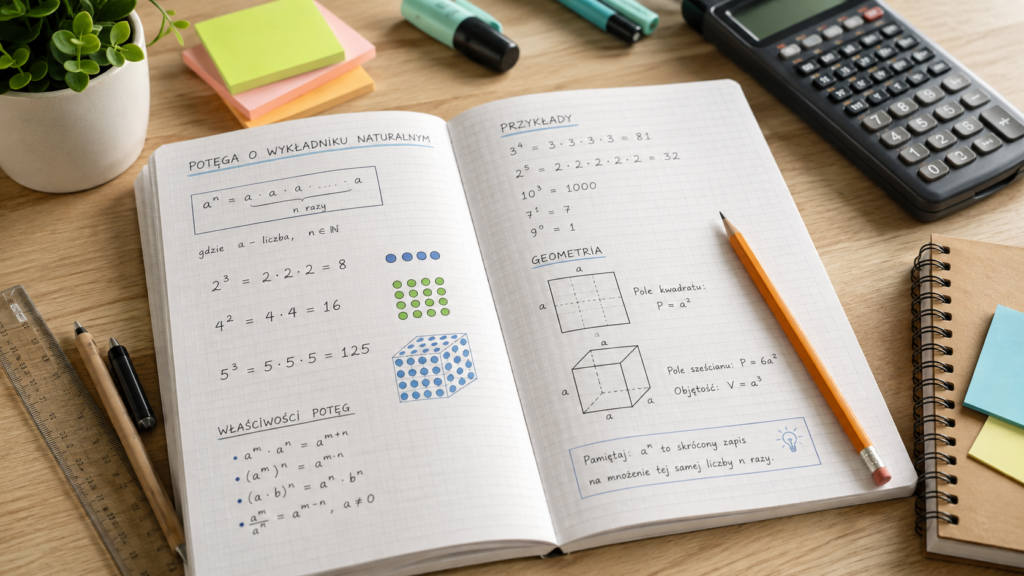 POTĘGA O WYKŁADNIKU NATURALNYM
aⁿ = a · a · a · .... · a
n razy
gdzie a – liczba, n ∈ ℕ
2³ = 2 · 2 · 2 = 8
4² = 4 · 4 = 16
5³ = 5 · 5 · 5 = 125
WŁAŚCIWOŚCI POTĘG
• aᵐ · aⁿ = aᵐ⁺ⁿ
• (aᵐ)ⁿ = aᵐ·ⁿ
• (a · b)ⁿ = aⁿ · bⁿ
• aᵐ/aⁿ = aᵐ⁻ⁿ, a ≠ 0
PRZYKŁADY
3⁴ = 3 · 3 · 3 · 3 = 81
2⁵ = 2 · 2 · 2 · 2 · 2 = 32
10³ = 1000
7¹ = 7
9⁰ = 1
GEOMETRIA
a
a
a
Pole kwadratu:
P = a²
a
a
a
a
Pole sześcianu: P = 6a²
Objętość: V = a³
Pamiętaj: aⁿ to skrócony zapis
na mnożenie tej samej liczby n razy.